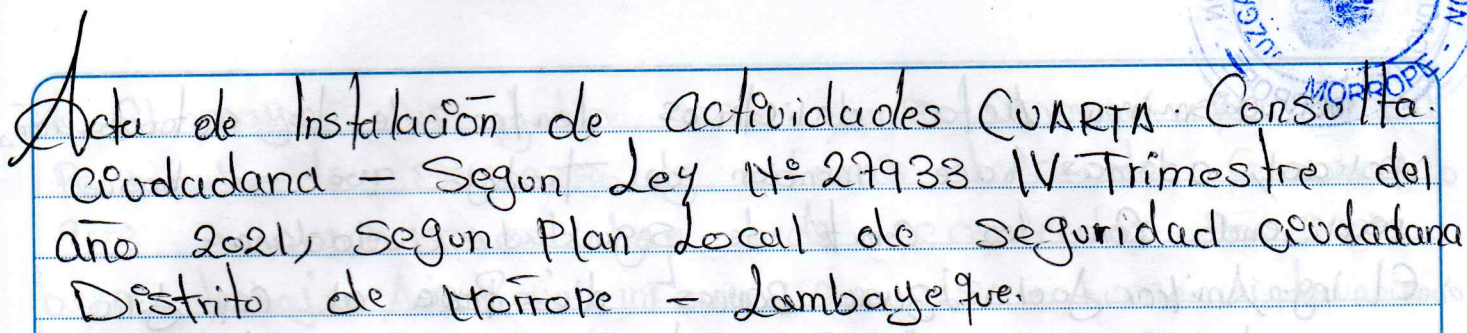 JUZGA
MORROPE - NO
Acta de Instalación de Actividades CUARTA Consulta.
Ciudadana - Segun Ley Nº 27933 IV Trimestre del
año 2021, Segun Plan Local de Seguridad Ciudadana
Distrito de Mórrope - Lambayeque.